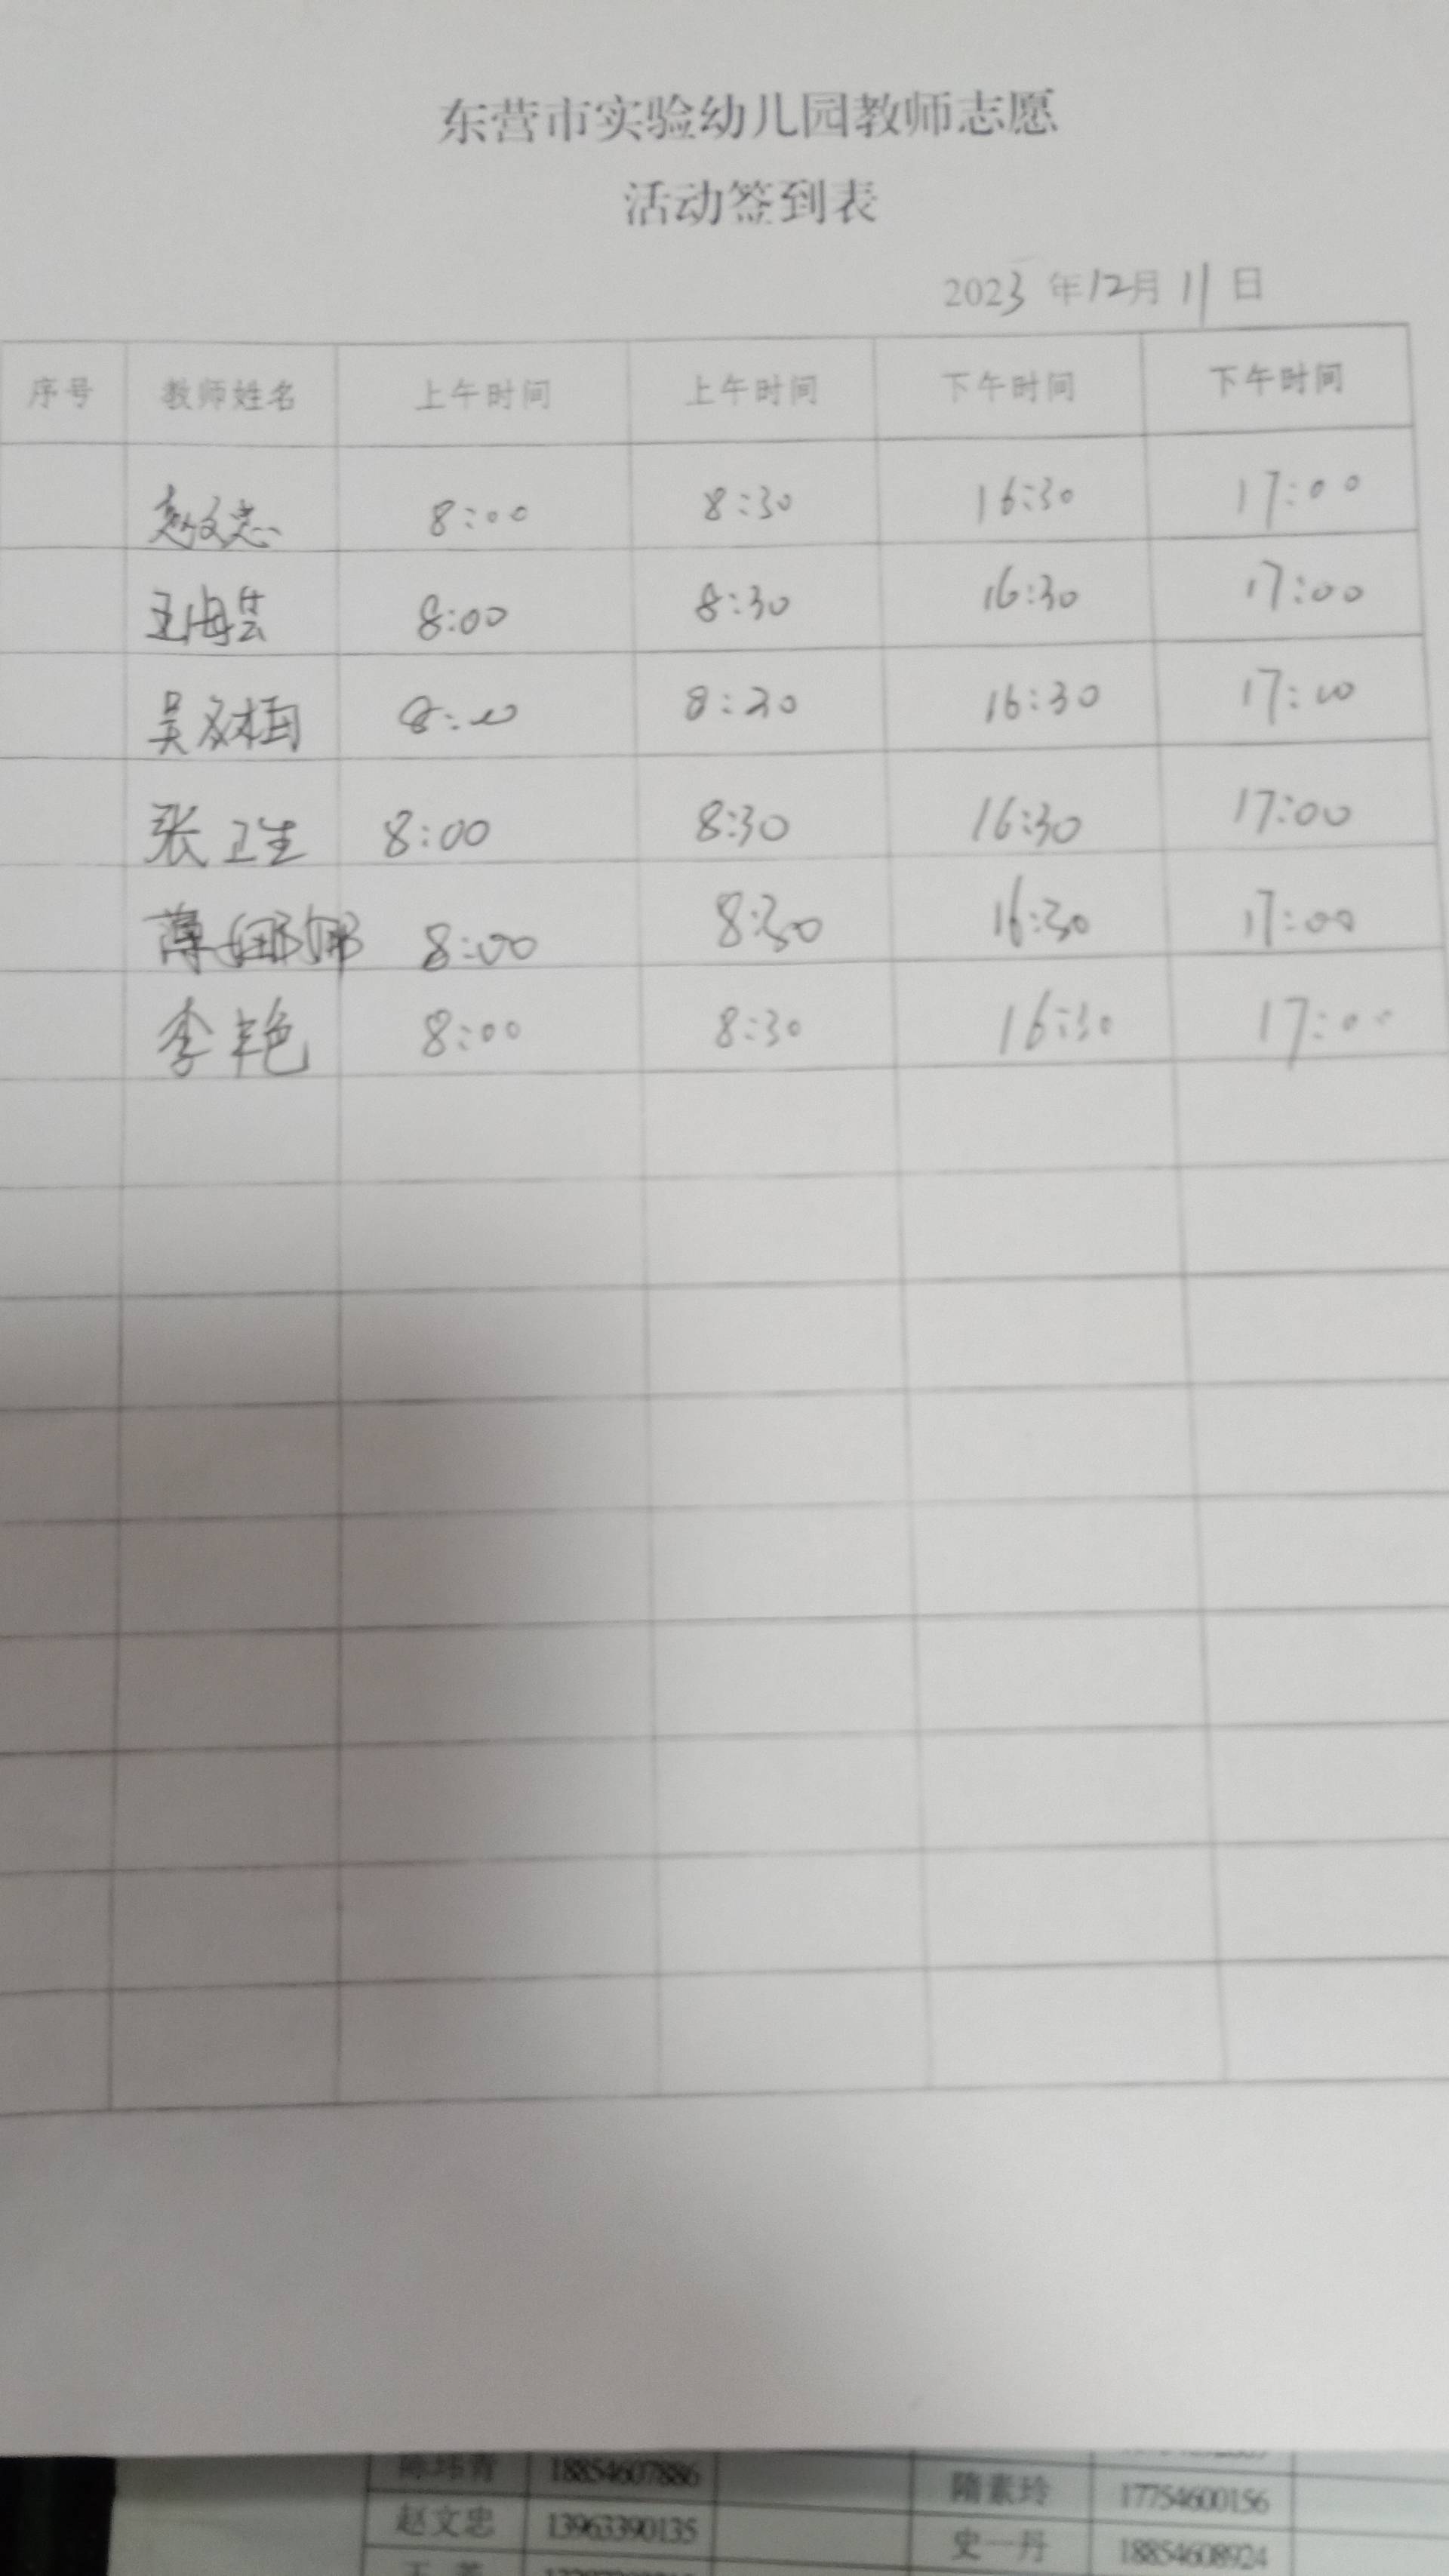 东营市实验幼儿园教师志愿
活动签到表
2023 年 12月 11 日
序号 教师姓名 上午时间 上午时间 下午时间 下午时间
赵文忠 8:00 8:30 16:30 17:00
王海芸 8:00 8:30 16:30 17:00
吴 8:00 8:30 16:30 17:00
张卫生 8:00 8:30 16:30 17:00
薄娜娜 8:00 8:30 16:30 17:00
李艳 8:00 8:30 16:30 17:00
18854607886 隋素玲 17754600156
赵文忠 13963390135 史一丹 18854608924